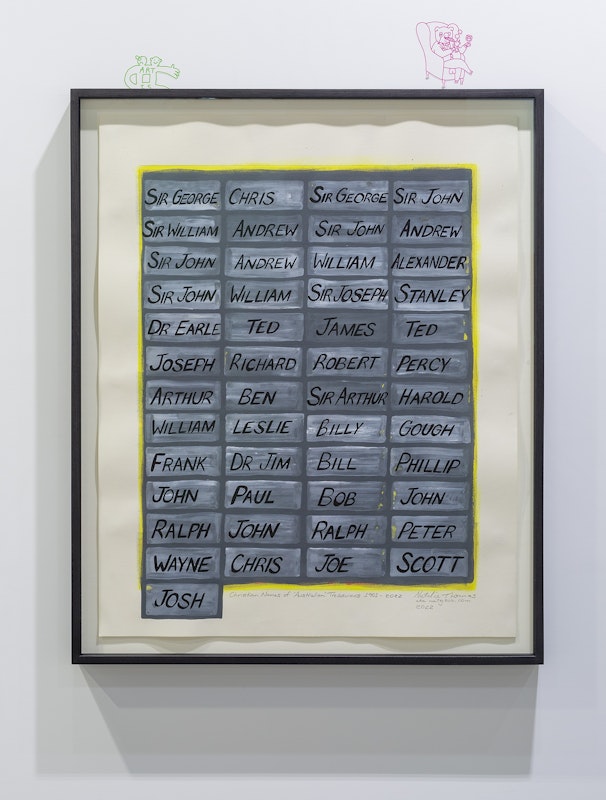 ART
SIR GEORGE CHRIS SIR GEORGE SIR JOHN
SIR WILLIAM ANDREW SIR JOHN ANDREW
SIR JOHN ANDREW WILLIAM ALEXANDER
SIR JOHN WILLIAM SIR JOSEPH STANLEY
DR EARLE TED JAMES TED
JOSEPH RICHARD ROBERT PERCY
ARTHUR BEN SIR ARTHUR HAROLD
WILLIAM LESLIE BILLY GOUGH
FRANK DR JIM BILL PHILLIP
JOHN PAUL BOB JOHN
RALPH JOHN RALPH PETER
WAYNE CHRIS JOE SCOTT
JOSH
Christian Names of Australian Treasurers 1901-2022
Natalie Thomas
2022